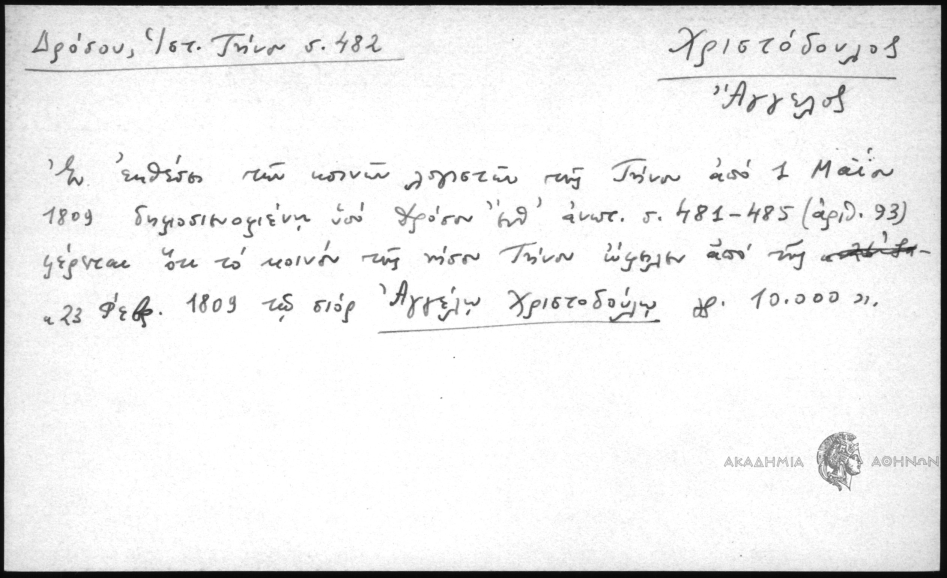 Δρόσου, Ἱστ. Τήνου σ. 482
Χριστόδουλος
Ἄγγελος
Ἐν ἐκθέσει τῶν κοινῶν λογιστῶν τῆς Τήνου ἀπό 1 Μαΐου
1809 δημοσιευομένῃ ὑπό Δρόσου ἀνωτ. σ. 481-485 (ἀριθ. 93)
φέρεται ὅτι τό κοινόν τῆς νήσου Τήνου ὤφειλεν ἀπό τῆς
23 Φεβ. 1809 τῷ σιόρ Ἀγγέλῳ Χριστοδούλῳ γρ. 10.000
ΑΚΑΔΗΜΙΑ ΑΘΗΝΩΝ